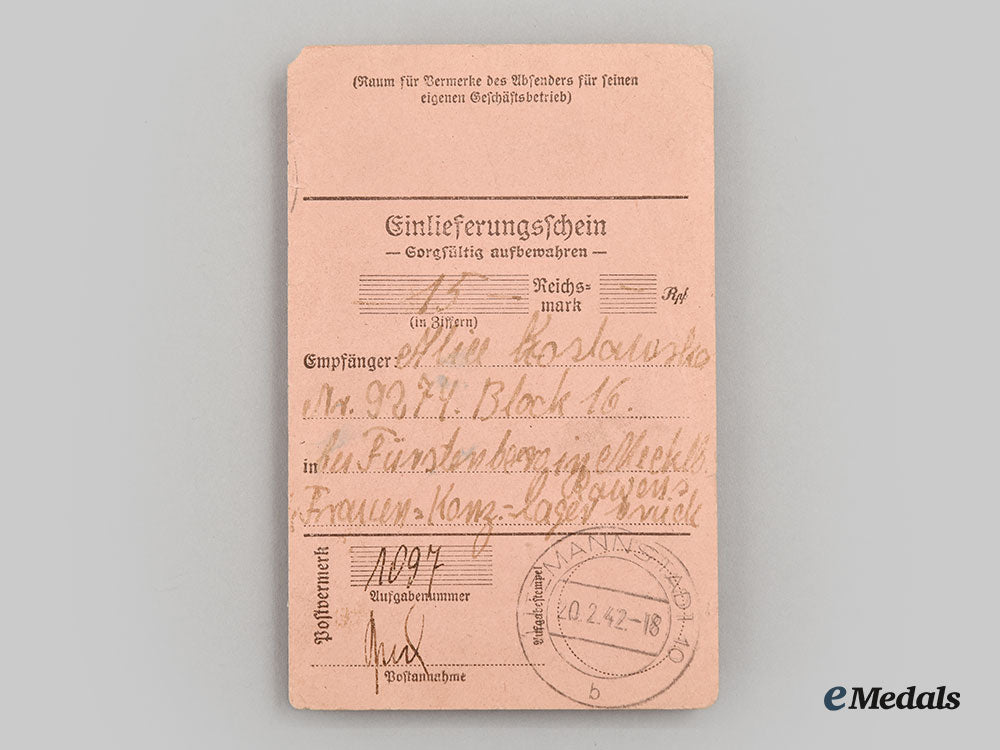 (Raum für Vermerke des Absenders für seinen
eigenen Geschäftsbetrieb)
Einlieferungsschein
— Sorgfältig aufbewahren —
15 — Reichs= mark — Rpf
(in Ziffern)
Empfänger: Alice
Nr. 9274. Block 16.
in Fürstenberg in Mecklb.
Frauen=Konz.-lager Rawensbrück
Postvermerk
1097
Aufgabenummer
Postannahme
Aufgabestempel
LITZMANNSTADT 10
20.2.42-18
b
eMedals